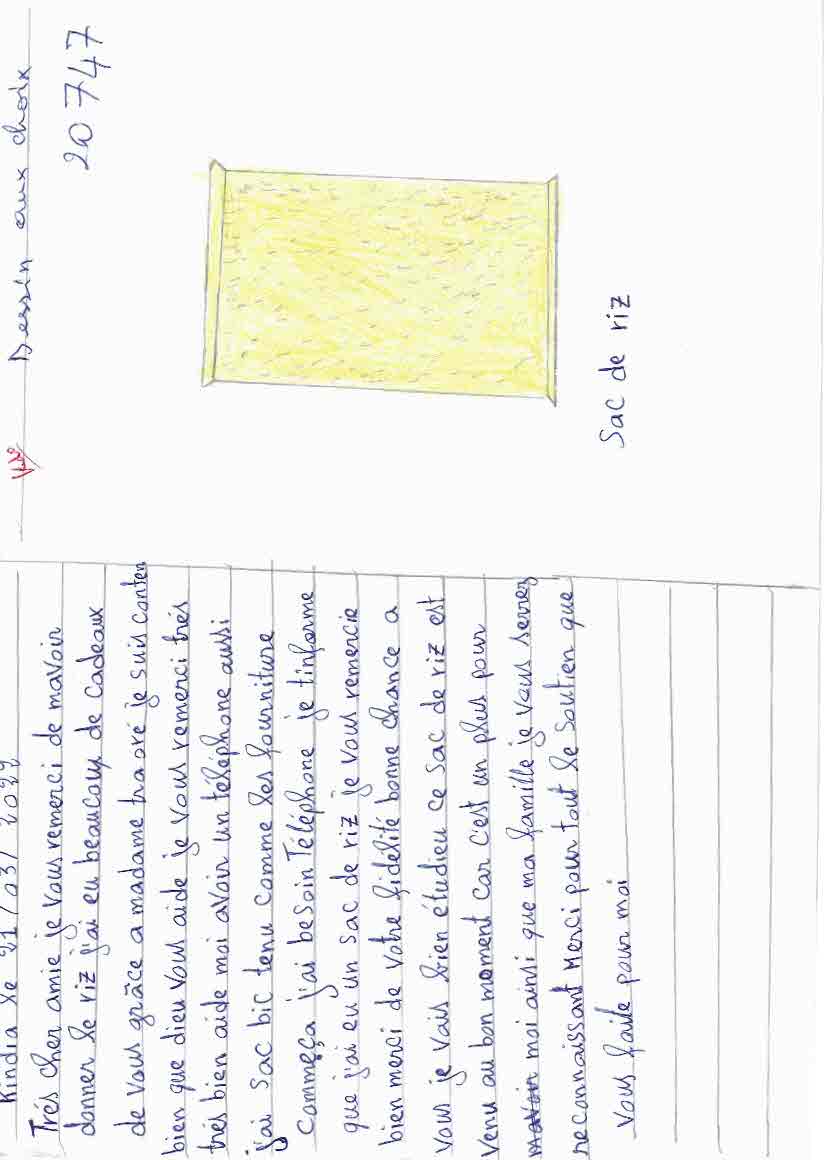 Kindia le 21 / 03 / 2022
Trés cher amie je vous remerci de mavoir
donner le riz j'ai eu beaucoup de cadeaux
de vous grâce a madame traoré je suis conten
bien que dieu vous aide je vous remerci trés
trés bien aide moi avoir un téléphone aussi
j'ai sac bic tenu comme les fourniture
commença j'ai besoin Téléphone je t'informe
que j'ai eu un sac de riz je vous remercie
bien merci de votre fidélité bonne chance a
vous je vais bien étudieu ce sac de riz est
venu au bon moment car c'est un plus pour
moi ainsi que ma famille je vous serrez
reconnaissant Merci pour tout le soutien que
vous faite pour moi
Dessin aux choix
20747
Sac de riz